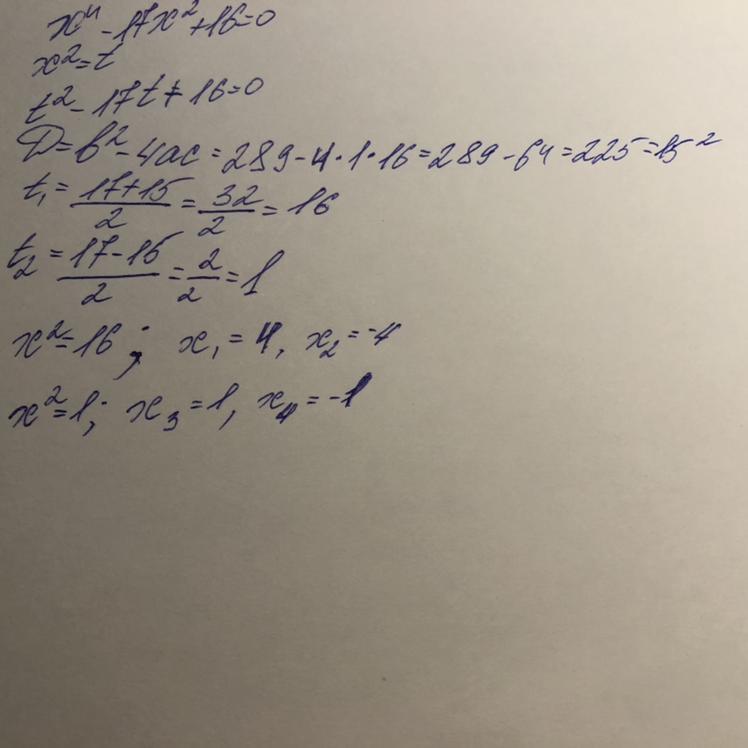 x⁴ - 17x² + 16 = 0
x² = t
t² - 17t + 16 = 0
D = b² - 4ac = 289 - 4·1·16 = 289 - 64 = 225 = 15²
t₁ = (17+15)/2 = 32/2 = 16
t₂ = (17-15)/2 = 2/2 = 1
x² = 16; x₁ = 4, x₂ = -4
x² = 1; x₃ = 1, x₄ = -1